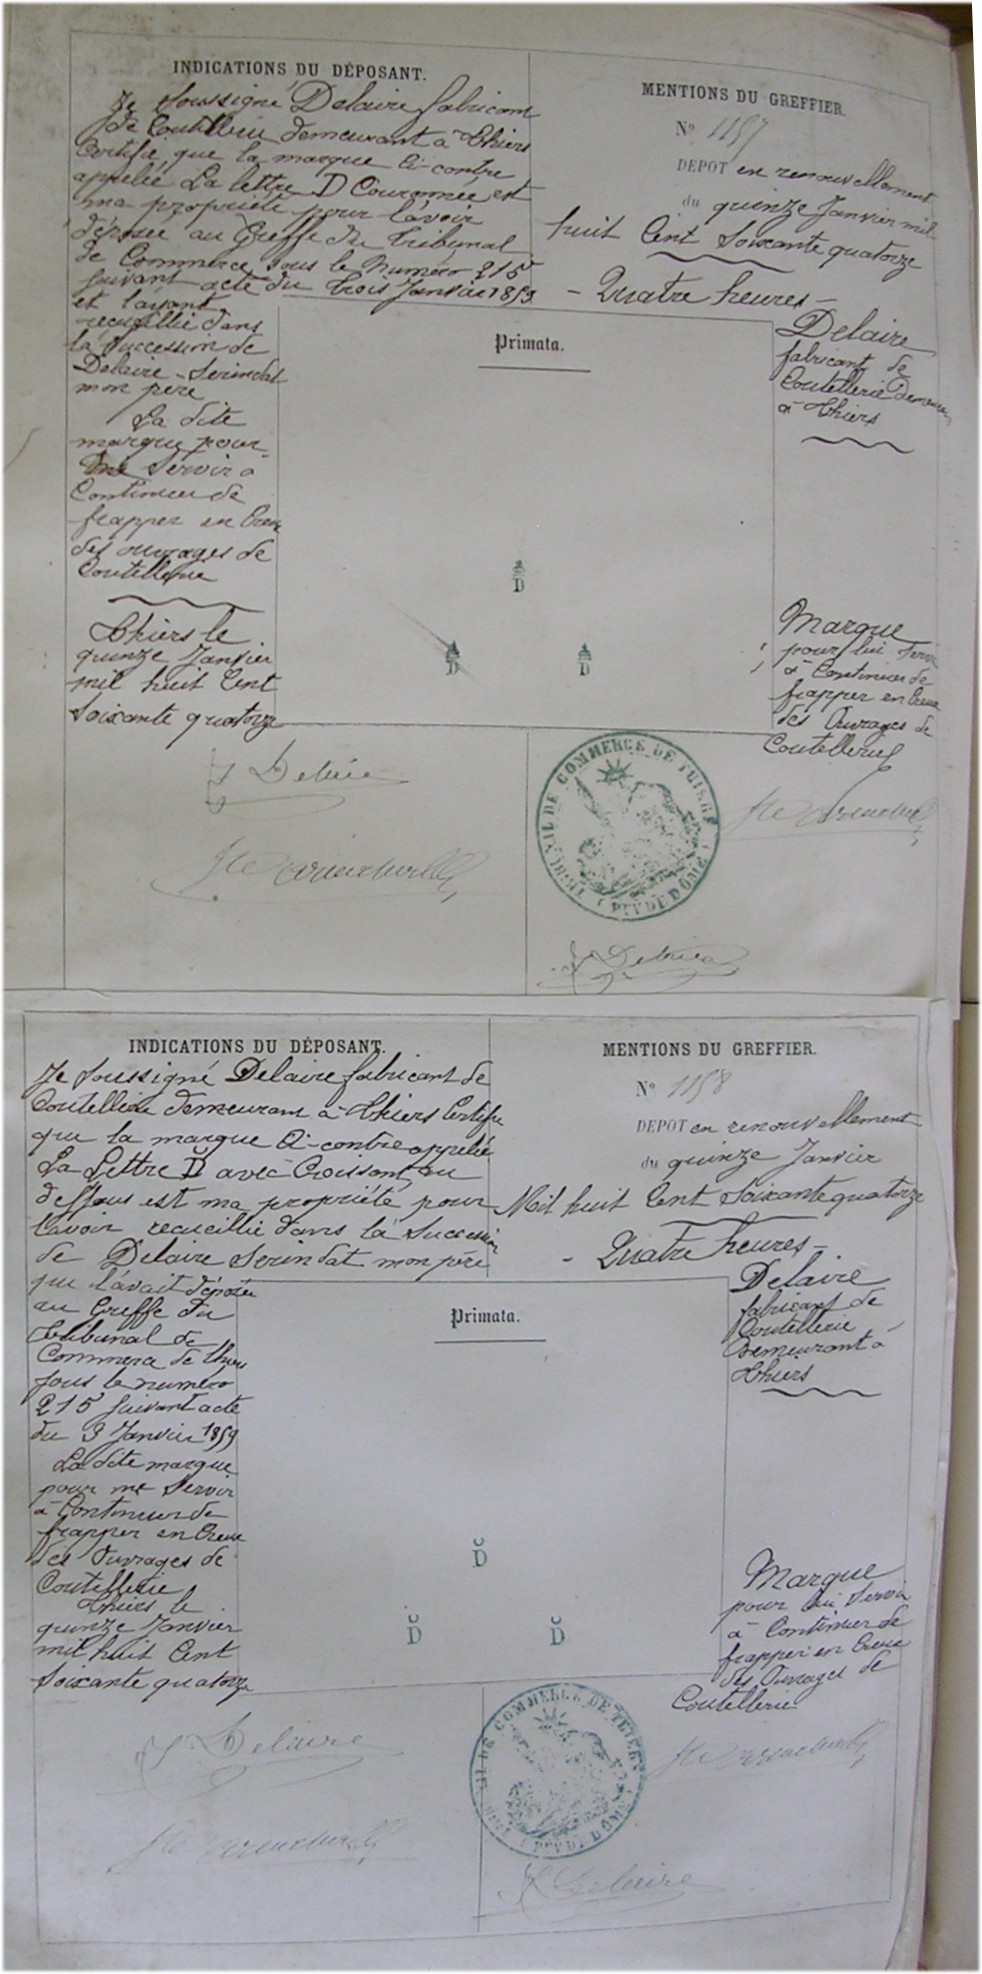 INDICATIONS DU DÉPOSANT.
Je Soussigné Delaire fabricant
de Coutellerie demeurant à Thiers
Certifie que la marque Ci-contre
appelée La lettre D Couronnée est
ma propriété pour l'avoir
déposée au Greffe du Tribunal
de Commerce sous le Numéro 215
suivant acte du trois Janvier 1859
et l'ayant
recueillie dans
la Succession de
Delaire-Serindat
mon père
La dite
marque pour
me Servir à
Continuer de
frapper en Creux
des ouvrages de
Coutellerie
Thiers le
quinze Janvier
mil huit Cent
Soixante quatorze
MENTIONS DU GREFFIER.
No 1157
DEPOT en renouvellement
du quinze Janvier mil
huit Cent Soixante quatorze
- Quatre heures -
Primata.
Delaire
fabricant de
Coutellerie demeurant
à Thiers
D
D D
Marque
pour lui Servir
à Continuer de
frapper en Creux
des Ouvrages de
Coutellerie
J Delaire
TRIBUNAL DE COMMERCE DE THIERS
(PUY DE DÔME)
J Delaire
INDICATIONS DU DÉPOSANT.
Je Soussigné Delaire fabricant de
Coutellerie demeurant à Thiers Certifie
que la marque Ci-contre appelée
La Lettre D avec Croissant au
dessus est ma propriété pour
l'avoir recueillie dans la Succession
de Delaire Serindat mon père
qui l'avait déposée
au Greffe du
Tribunal de
Commerce de Thiers
sous le numéro
215 suivant acte
du 3 Janvier 1859
La dite marque
pour me Servir
à Continuer de
frapper en Creux
des Ouvrages de
Coutellerie
Thiers le
quinze Janvier
mil huit Cent
Soixante quatorze
MENTIONS DU GREFFIER.
No 1158
DEPOT en renouvellement
du quinze Janvier
Mil huit Cent Soixante quatorze
- Quatre heures -
Primata.
Delaire
fabricant de
Coutellerie
Demeurant à
Thiers
D
D D
Marque
pour lui Servir
à Continuer de
frapper en Creux
des Ouvrages de
Coutellerie
J Delaire
TRIBUNAL DE COMMERCE DE THIERS
(PUY DE DÔME)
J Delaire